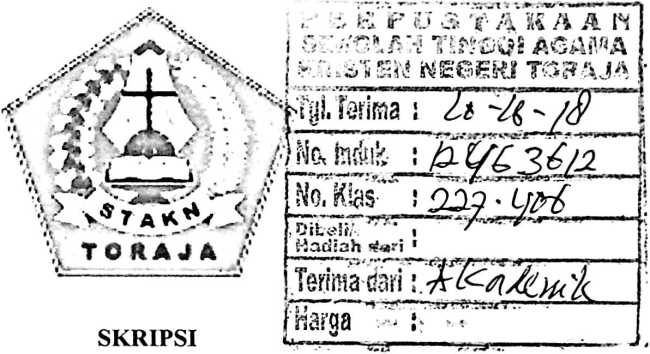 STAKN
TORAJA
SKRIPSI
PERPUSTAKAAN
SEKOLAH TINGGI AGAMA
KRISTEN NEGERI TORAJA
Tgl. Terima :
No. Induk :
No. Klas : 227.406
Dibeli/
Hadiah dari :
Terima dari : Akademik
Harga :